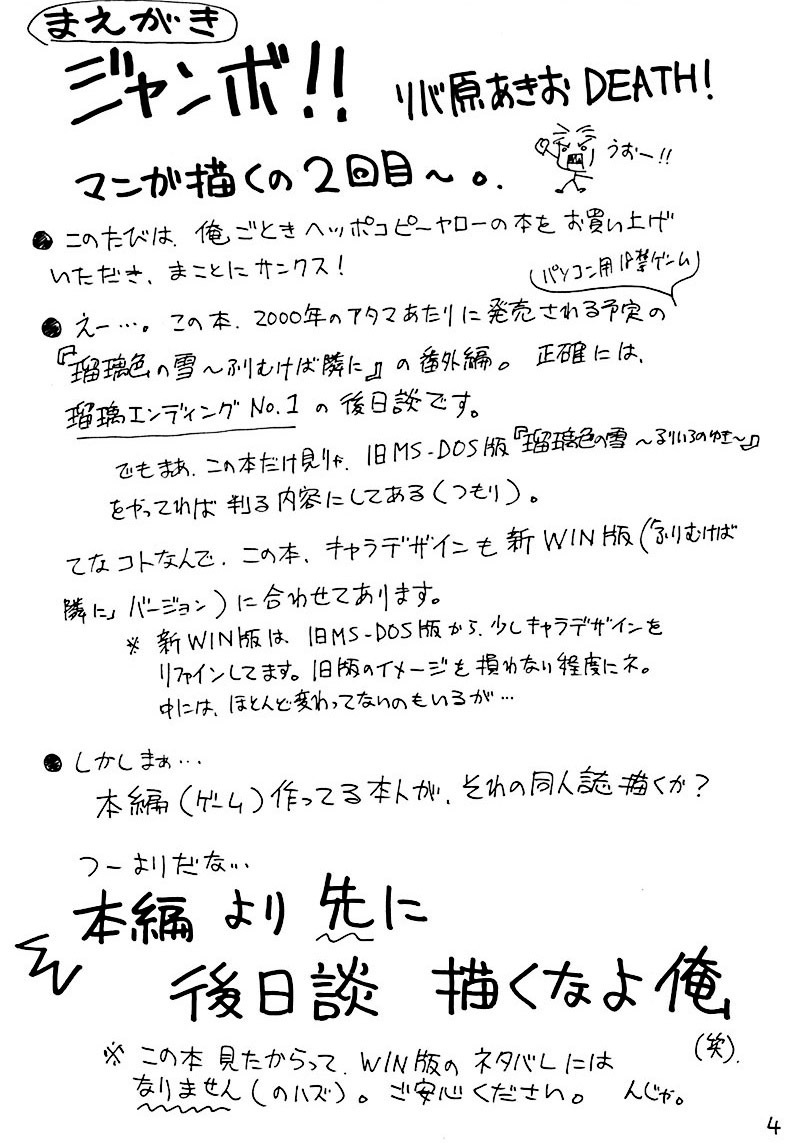 まえがき
ジャンボ!! リバ原あきお DEATH!
うおー!!
マンガ描くの2回目〜。
● このたびは、俺ごときヘッポコピーヤローの本をお買い上げ
いただき、まことにサンクス!
(パソコン用18禁ゲーム)
● えー…。この本、2000年のアタマあたりに発売される予定の
『瑠璃色の雪〜ふりむけば隣に』の番外編。正確には、
瑠璃エンディング No.1 の後日談です。
でもまあ、この本だけ見りゃ、旧MS-DOS版『瑠璃色の雪〜るりいろのゆき〜』
をやってれば判る内容にしてある(つもり)。
てなコトなんで、この本、キャラデザインも新WIN版(「ふりむけば
隣に」バージョン)に合わせてあります。
※ 新WIN版は、旧MS-DOS版から、少しキャラデザインを
リファインしてます。旧版のイメージを損わない程度にネ。
中には、ほとんど変わってないのもいるが…
● しかしまぁ…
本編(ゲーム)作ってる本人が、それの同人誌描くか?
つーよりだな…
本編より先に
後日談 描くなよ俺
(笑).
※ この本見たからって、WIN版のネタバレには
なりません(のハズ)。ご安心ください。 んじゃ。
4